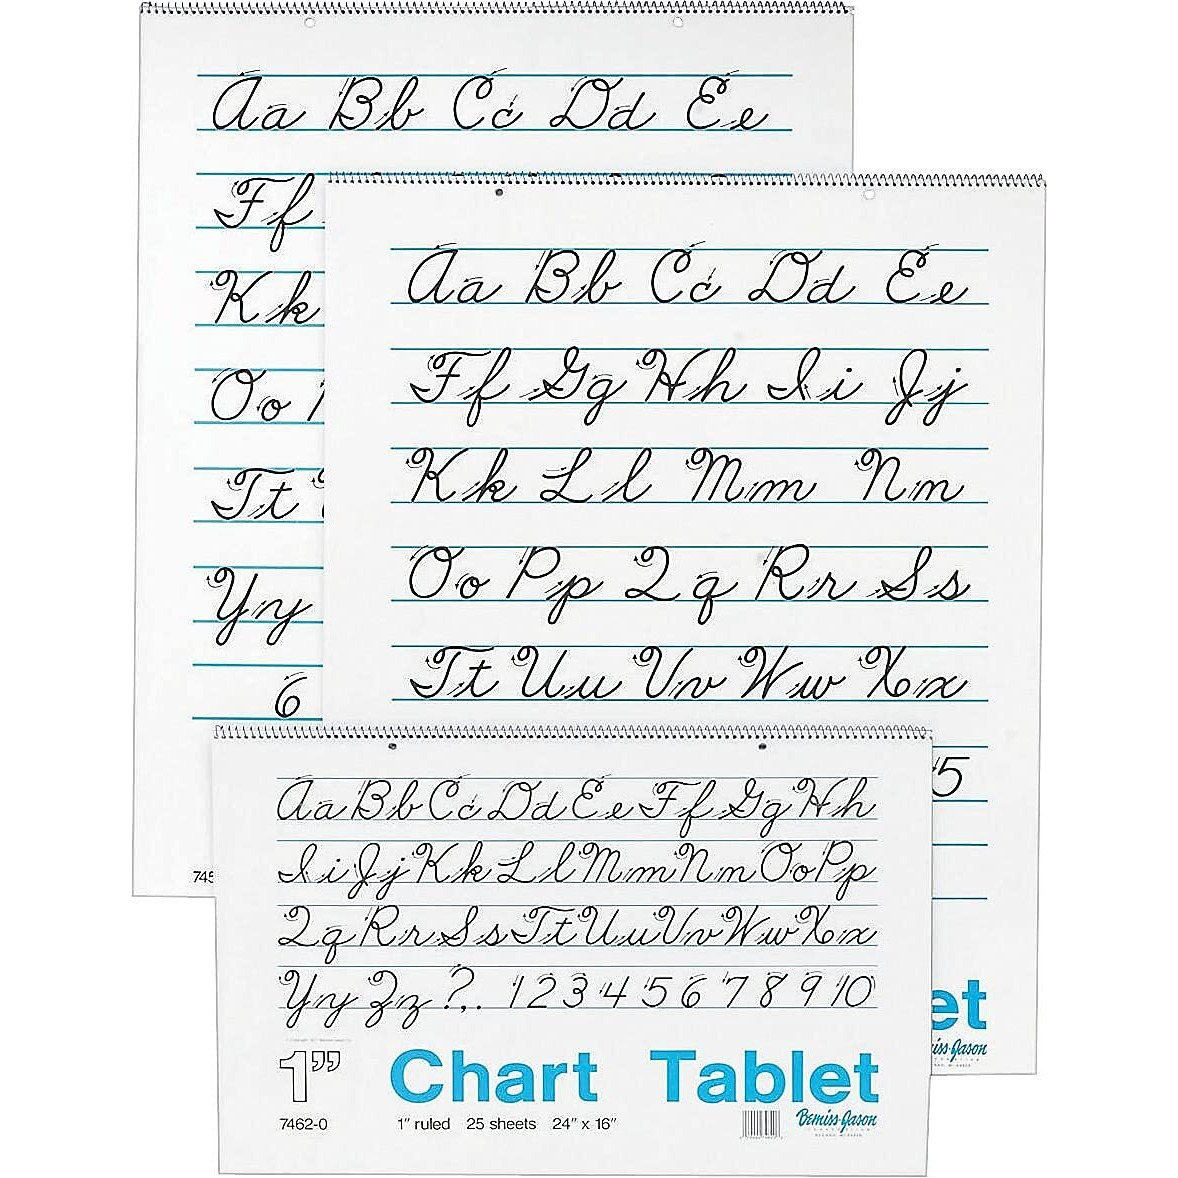 Aa Bb Cc Dd Ee
Ff
Kk
Oo
Tt
Yy
6
745
Aa Bb Cc Dd Ee
Ff Gg Hh Ii Jj
Kk Ll Mm Nn
Oo Pp Qq Rr Ss
Tt Uu Vv Ww Xx
5
et
iss-Jason
Aa Bb Cc Dd Ee Ff Gg Hh
Ii Jj Kk Ll Mm Nn Oo Pp
Qq Rr Ss Tt Uu Vv Ww Xx
Yy Zz ? , . 1 2 3 4 5 6 7 8 9 10
1” Chart Tablet
7462-0 1” ruled 25 sheets 24” x 16” Bemiss-Jason